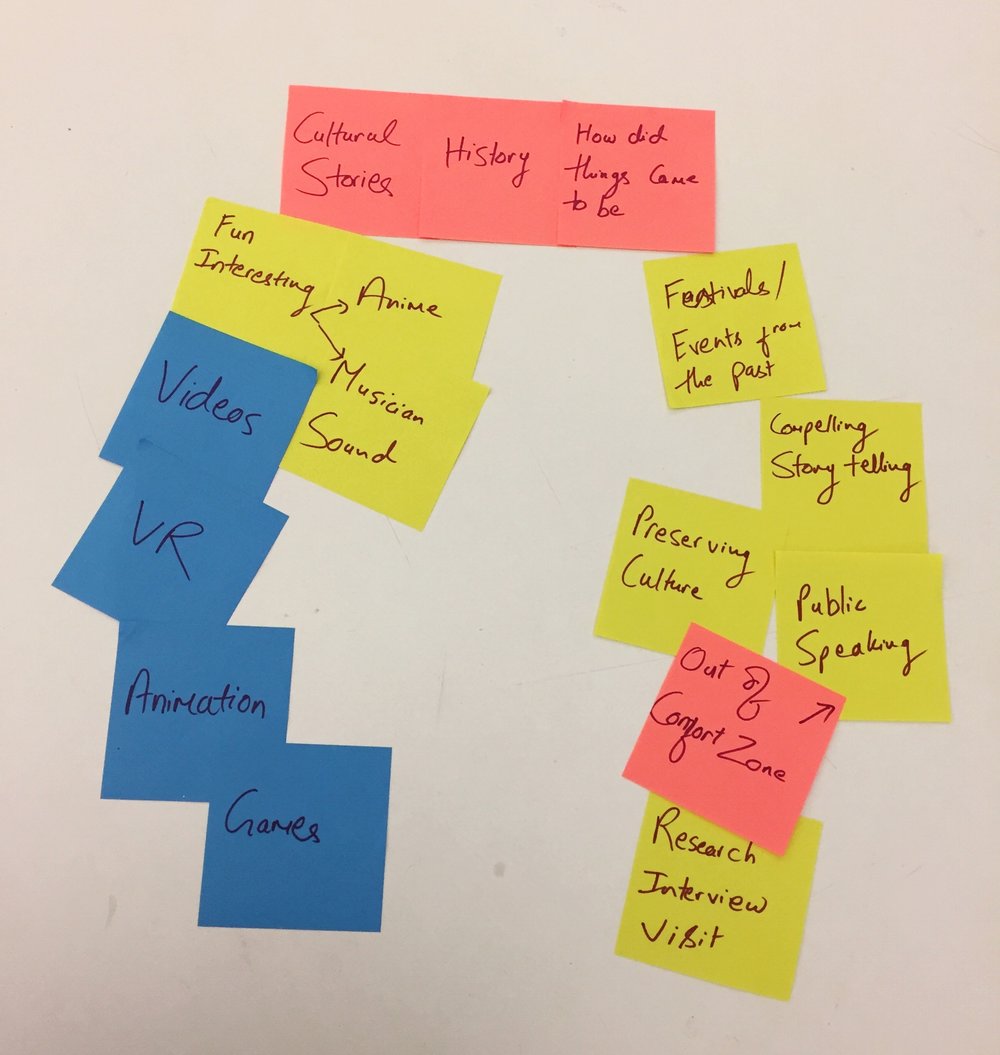 Cultural
Stories
History
How did
things came
to be
Fun
Interesting
Anime
Musician
Sound
Videos
VR
Animation
Games
Festivals/
Events from
the past
Compelling
Story telling
Preserving
Culture
Public
Speaking
Out of
Comfort Zone
Research
Interview
Visit